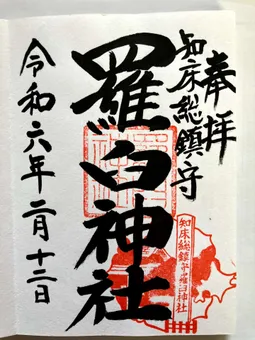 奉拝
知床総鎮守
羅臼神社
令和六年二月十二日
知床総鎮守羅臼神社